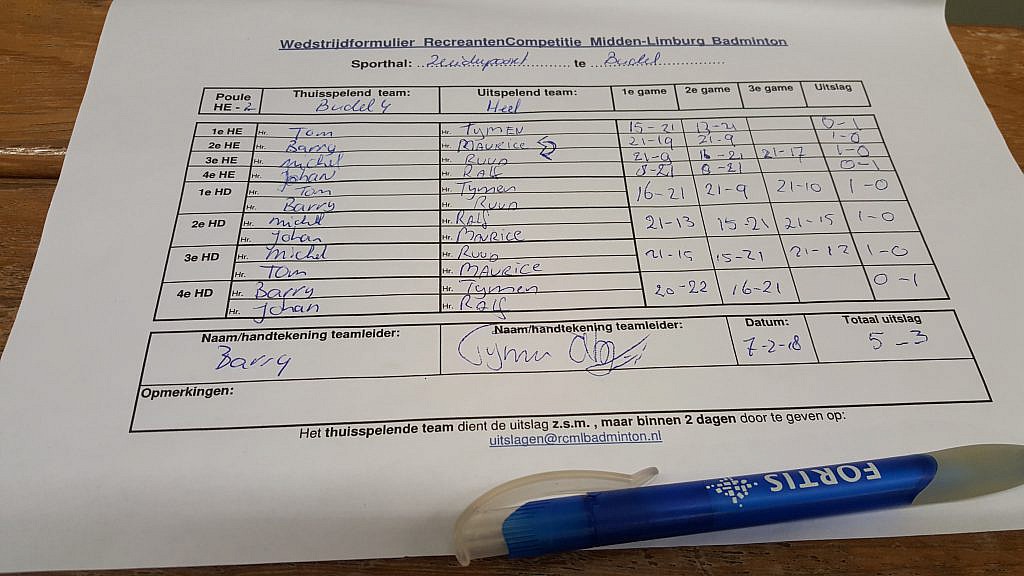 Wedstrijdformulier RecreantenCompetitie Midden-Limburg Badminton
Sporthal: te Budel
Poule HE - 2 Thuisspelend team: Budel 4 Uitspelend team: Heel 1e game 2e game 3e game Uitslag
1e HE Hr. Tom Hr. TYMEN 15-21 13-21 0-1
2e HE Hr. Barry Hr. MAURICE 21-19 21-9 1-0
3e HE Hr. Michel Hr. RUUD 21-9 16-21 21-17 1-0
4e HE Hr. Johan Hr. RALF 8-21 8-21 0-1
1e HD Hr. Tom Hr. Tymen 16-21 21-9 21-10 1-0
Hr. Barry Hr. Ruud
2e HD Hr. Michel Hr. RALF 21-13 15-21 21-15 1-0
Hr. Johan Hr. MAURICE
3e HD Hr. Michel Hr. RUUD 21-15 15-21 21-12 1-0
Hr. Tom Hr. MAURICE
4e HD Hr. Barry Hr. Tymen 20-22 16-21 0-1
Hr. Johan Hr. RALF
Naam/handtekening teamleider: Naam/handtekening teamleider: Datum: Totaal uitslag
Barry Tymen 7-2-18 5-3
Opmerkingen:
Het thuisspelende team dient de uitslag z.s.m. , maar binnen 2 dagen door te geven op:
uitslagen@rcmlbadminton.nl
FORTIS